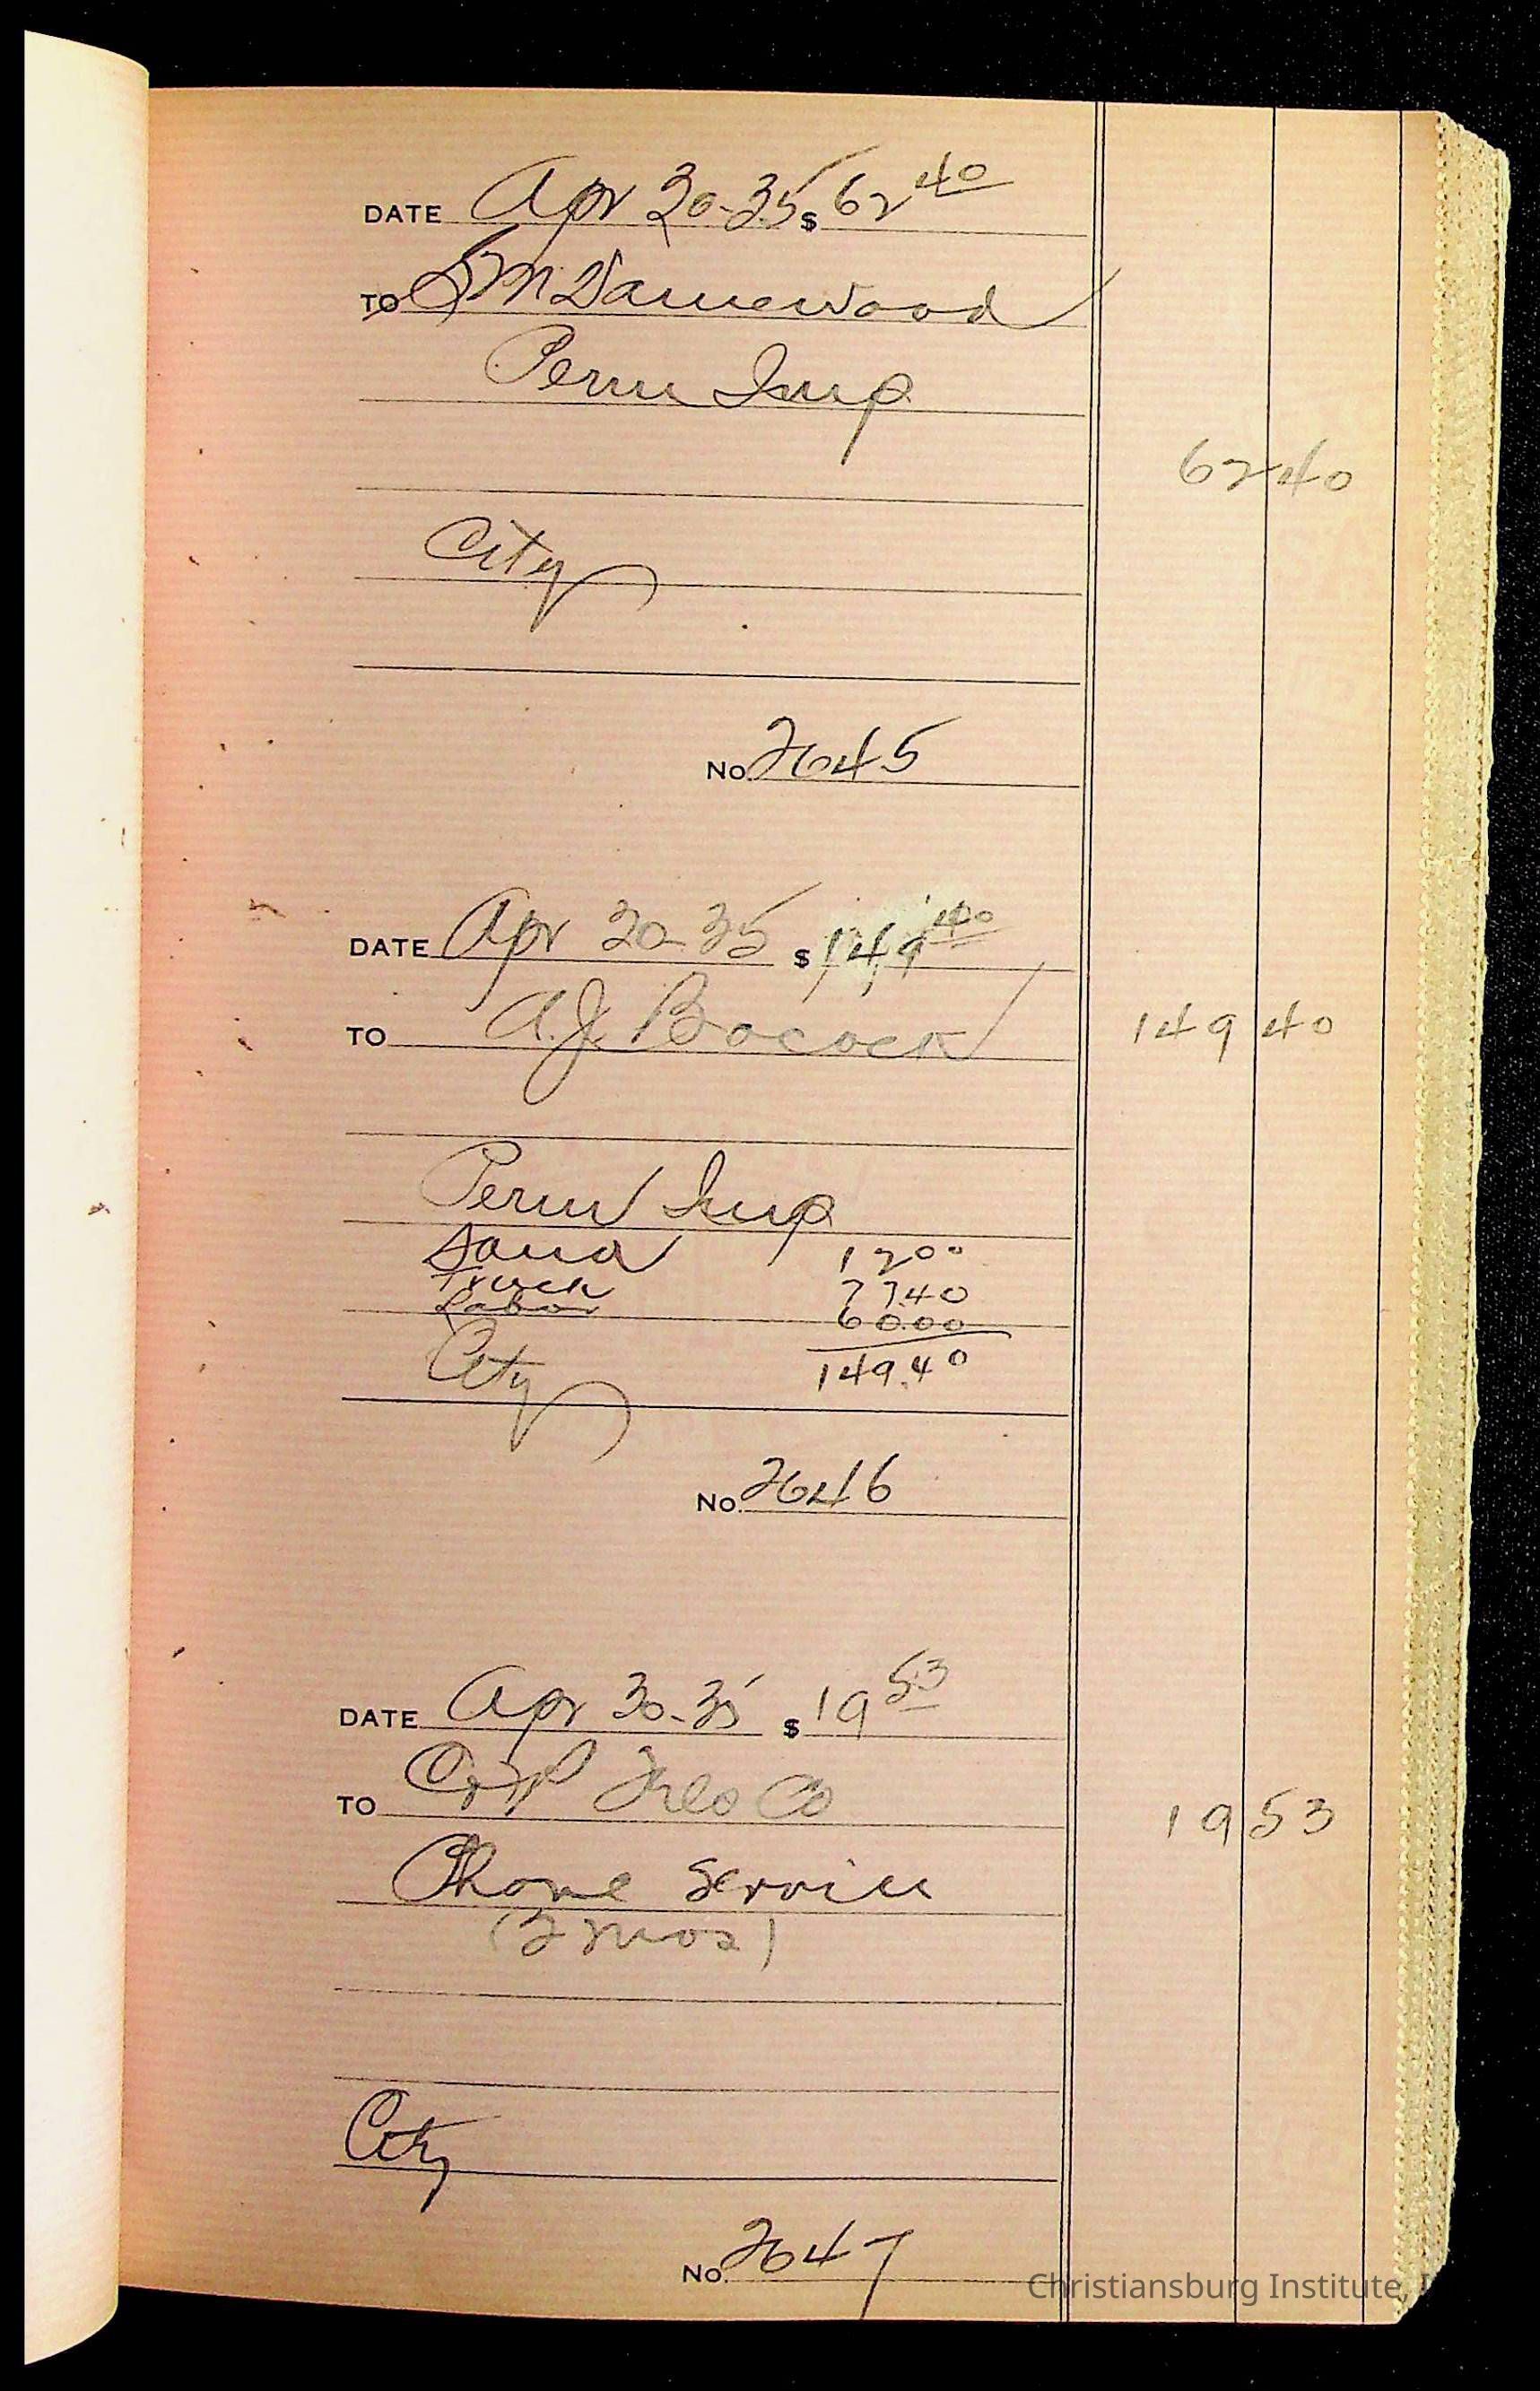 DATE Apr 30-35 $ 62 40
TO S M Damewood
Perm Imp
62 40
City
No. 2645
DATE Apr 30-35 $ 149 40
TO A.J. Bocock 149 40
Perm Imp
Sand 12 00
Truck 77.40
Labor 60.00
City 149.40
No. 2646
DATE Apr 30-35 $ 19 53
TO C & P Tele Co 19 53
Phone Service
(2 mos)
City
No. 2647
Christiansburg Institute,